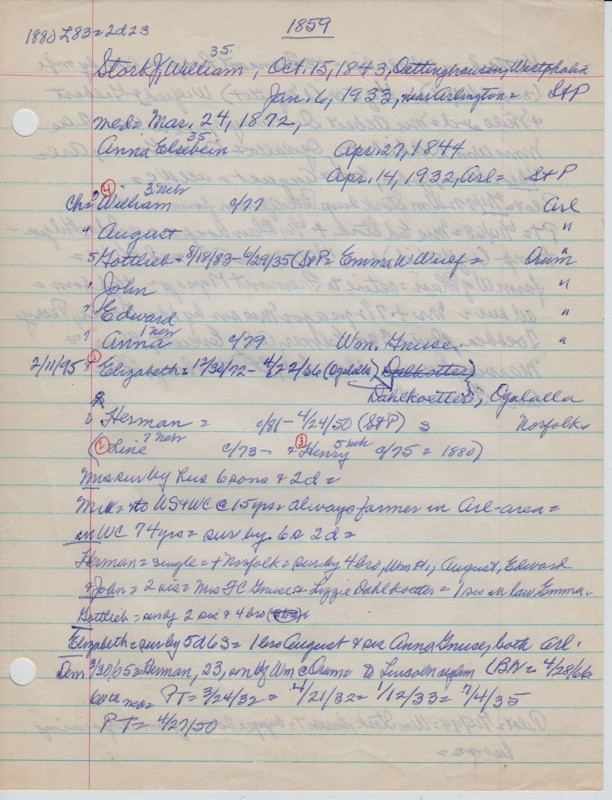 1880 L83=2d23
1859
35
Stork, J William, Oct. 15, 1843, Westphalia
Jan. 6, 1933, near Arlington= S&P
Med= Mar. 24, 1872,
Anna Elsebein 35 Apr. 27, 1844
Apr. 14, 1932, Arl= S&P
Ch= 3 ④ William 3 Neb c/77 Arl
4 August "
5 Gottlieb= 8/18/83- 6/29/35 (S&P= Emma W = Orum
1 John "
2 Edward "
? Anna 1 Neb c/79 Wm. Gnuse. "
2/11/95 ① Elizabeth= 12/30/72- 4/22/66 (Ogalalla) Dahlkoetter
Dahlkoetter, Ogalalla
6 Herman = c/81- 4/24/50 (S&P) S Norfolk
(② Line 7 Neb c/73- & ③ Henry 5 Neb c/75 = 1880)
Mrs sur by hus 6 sons & 2d=
Mr= to US & WC @ 15 yrs= always farmer in Arl-area=
in WC 74 yrs= sur by 6s 2d=
Herman= single= + Norfolk= sur by 4 bro, Wm H., August, Edward
& John= 2 sis= Mrs FC Gnuse & Lizzie Dahlkoetter= 1 sis in law Emma.
Gottlieb= sur by 2 sis & 4 bro
Elizabeth= sur by 5d 6s= 1 bro August & sis Anna Gnuse, both Arl.
Dem 3/30/05= Herman, 23, son of Wm C Orum= to Lincoln asylum (BN= 4/28/66
60th PT= 3/24/32= 4/21/32= 1/12/33= 7/4/35
PT= 4/27/50